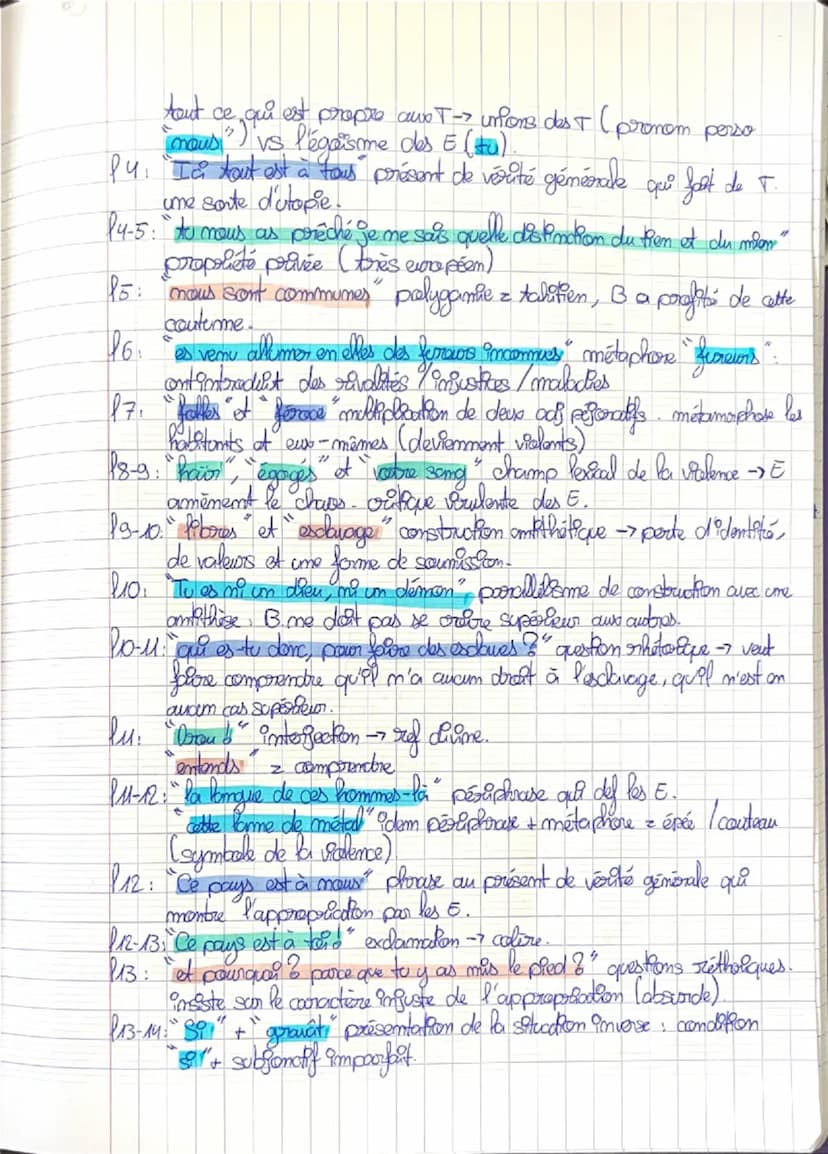 tout ce qui est propre aux T → unions des T (pronom perso
"nous") vs l'égoïsme des E (tu).
l4: "Ici tout est à tous" présent de vérité générale qui fait de T.
une sorte d'utopie.
l4-5: "tu nous as prêché je ne sais quelle distinction du tien et du mien"
propriété privée (très européen)
l5: "nous sont communes" polygamie = tahitien, B a profité de cette
coutume.
l6: "es venu allumer en elles des fureurs inconnues" métaphore "fureurs":
ont introduit des rivalités / injustices / maladies
l7: "folles" et "féroce" multiplication de deux adj péjoratifs. métamorphose les
habitants et eux-mêmes (deviennent violents)
l8-9: "haïr", "égorgés" et "votre sang" champ lexical de la violence → E
amènent le chaos. critique virulente des E.
l9-10: "libres" et "esclavage" construction antithétique → perte d'identité,
de valeurs et une forme de soumission.
l10: "Tu es ni un dieu, ni un démon" parallélisme de construction avec une
antithèse. B. ne doit pas se croire supérieur aux autres.
l10-11: "qui es-tu donc, pour faire des esclaves ?" question rhétorique → veut
faire comprendre qu'il n'a aucun droit à l'esclavage, qu'il n'est en
aucun cas supérieur.
l11: "Orou !" interjection → ref divine.
"entends" = comprendre
l11-12: "la langue de ces hommes-là" périphrase qui def les E.
"cette lame de métal" idem périphrase + métaphore = épée / couteau
(symbole de la violence)
l12: "Ce pays est à nous" phrase au présent de vérité générale qui
montre l'appropriation par les E.
l12-13: "Ce pays est à toi !" exclamation → colère.
l13: "et pourquoi ? parce que tu y as mis le pied ?" questions réthoriques.
insiste sur le caractère injuste de l'appropriation (absurde).
l13-14: "Si" + "gravât" présentation de la situation inverse : condition
"si" + subjonctif imparfait.